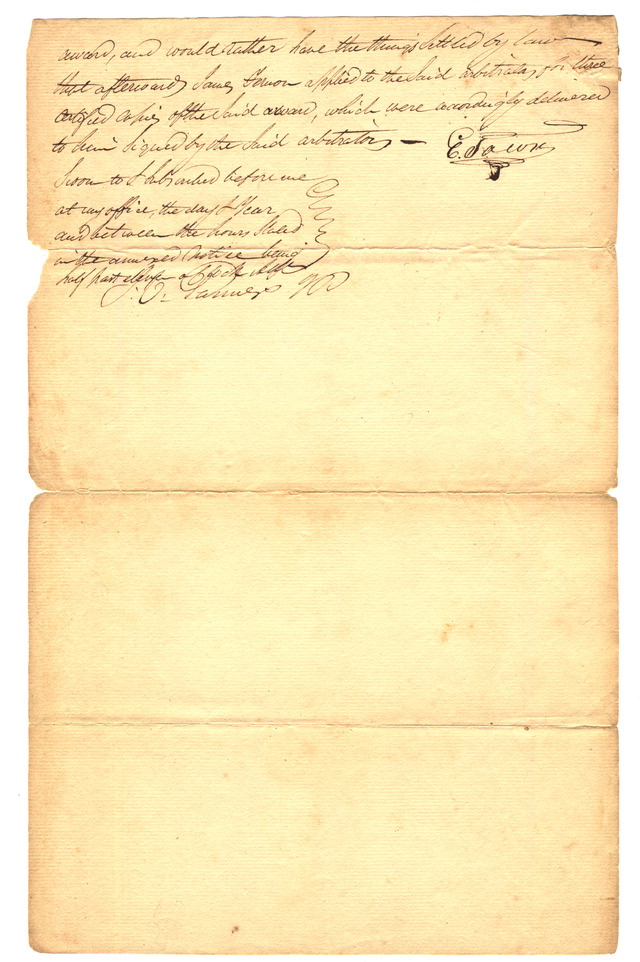 award, and would rather have the things settled by law
that afterwards James applied to the said arbitrators for three
certified copies of the said award, which were accordingly delivered
to him signed by the said arbitrators —
Sworn to & subscribed before me
at my office, the day & year
and between the hours stated
in the annexed notice being
half past eleven o'clock